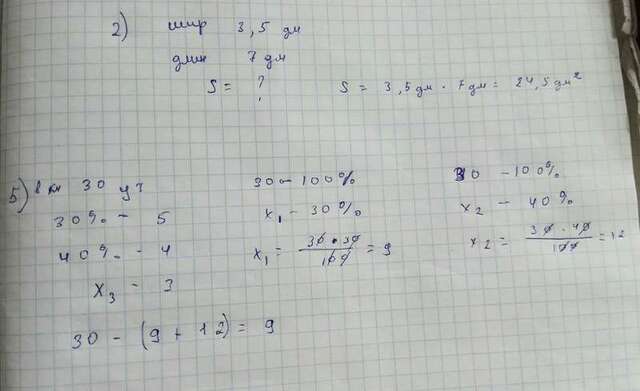 2) шир 3,5 дм
длин 7 дм
S = ? S = 3,5 дм · 7 дм = 24,5 дм²
5) в кл 30 уч 30 – 100% 30 – 100%
30% – 5 x₁ – 30% x₂ – 40%
40% – 4 x₁ = 30 · 30 / 100 = 9 x₂ = 30 · 40 / 100 = 12
x₃ – 3
30 – (9 + 12) = 9